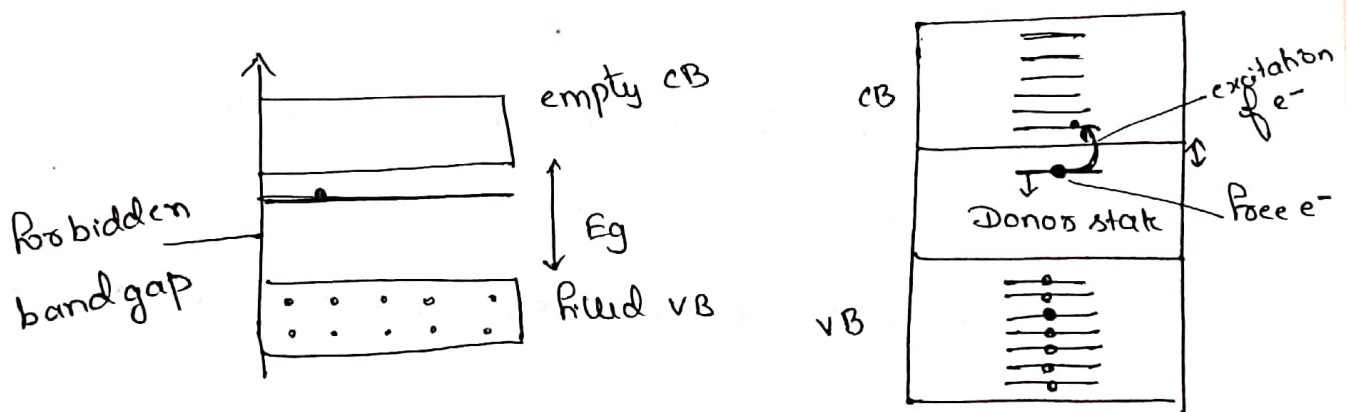 empty CB
Forbidden
bandgap
Eg
filled VB
CB
excitation
of e-
Donor state
free e-
VB